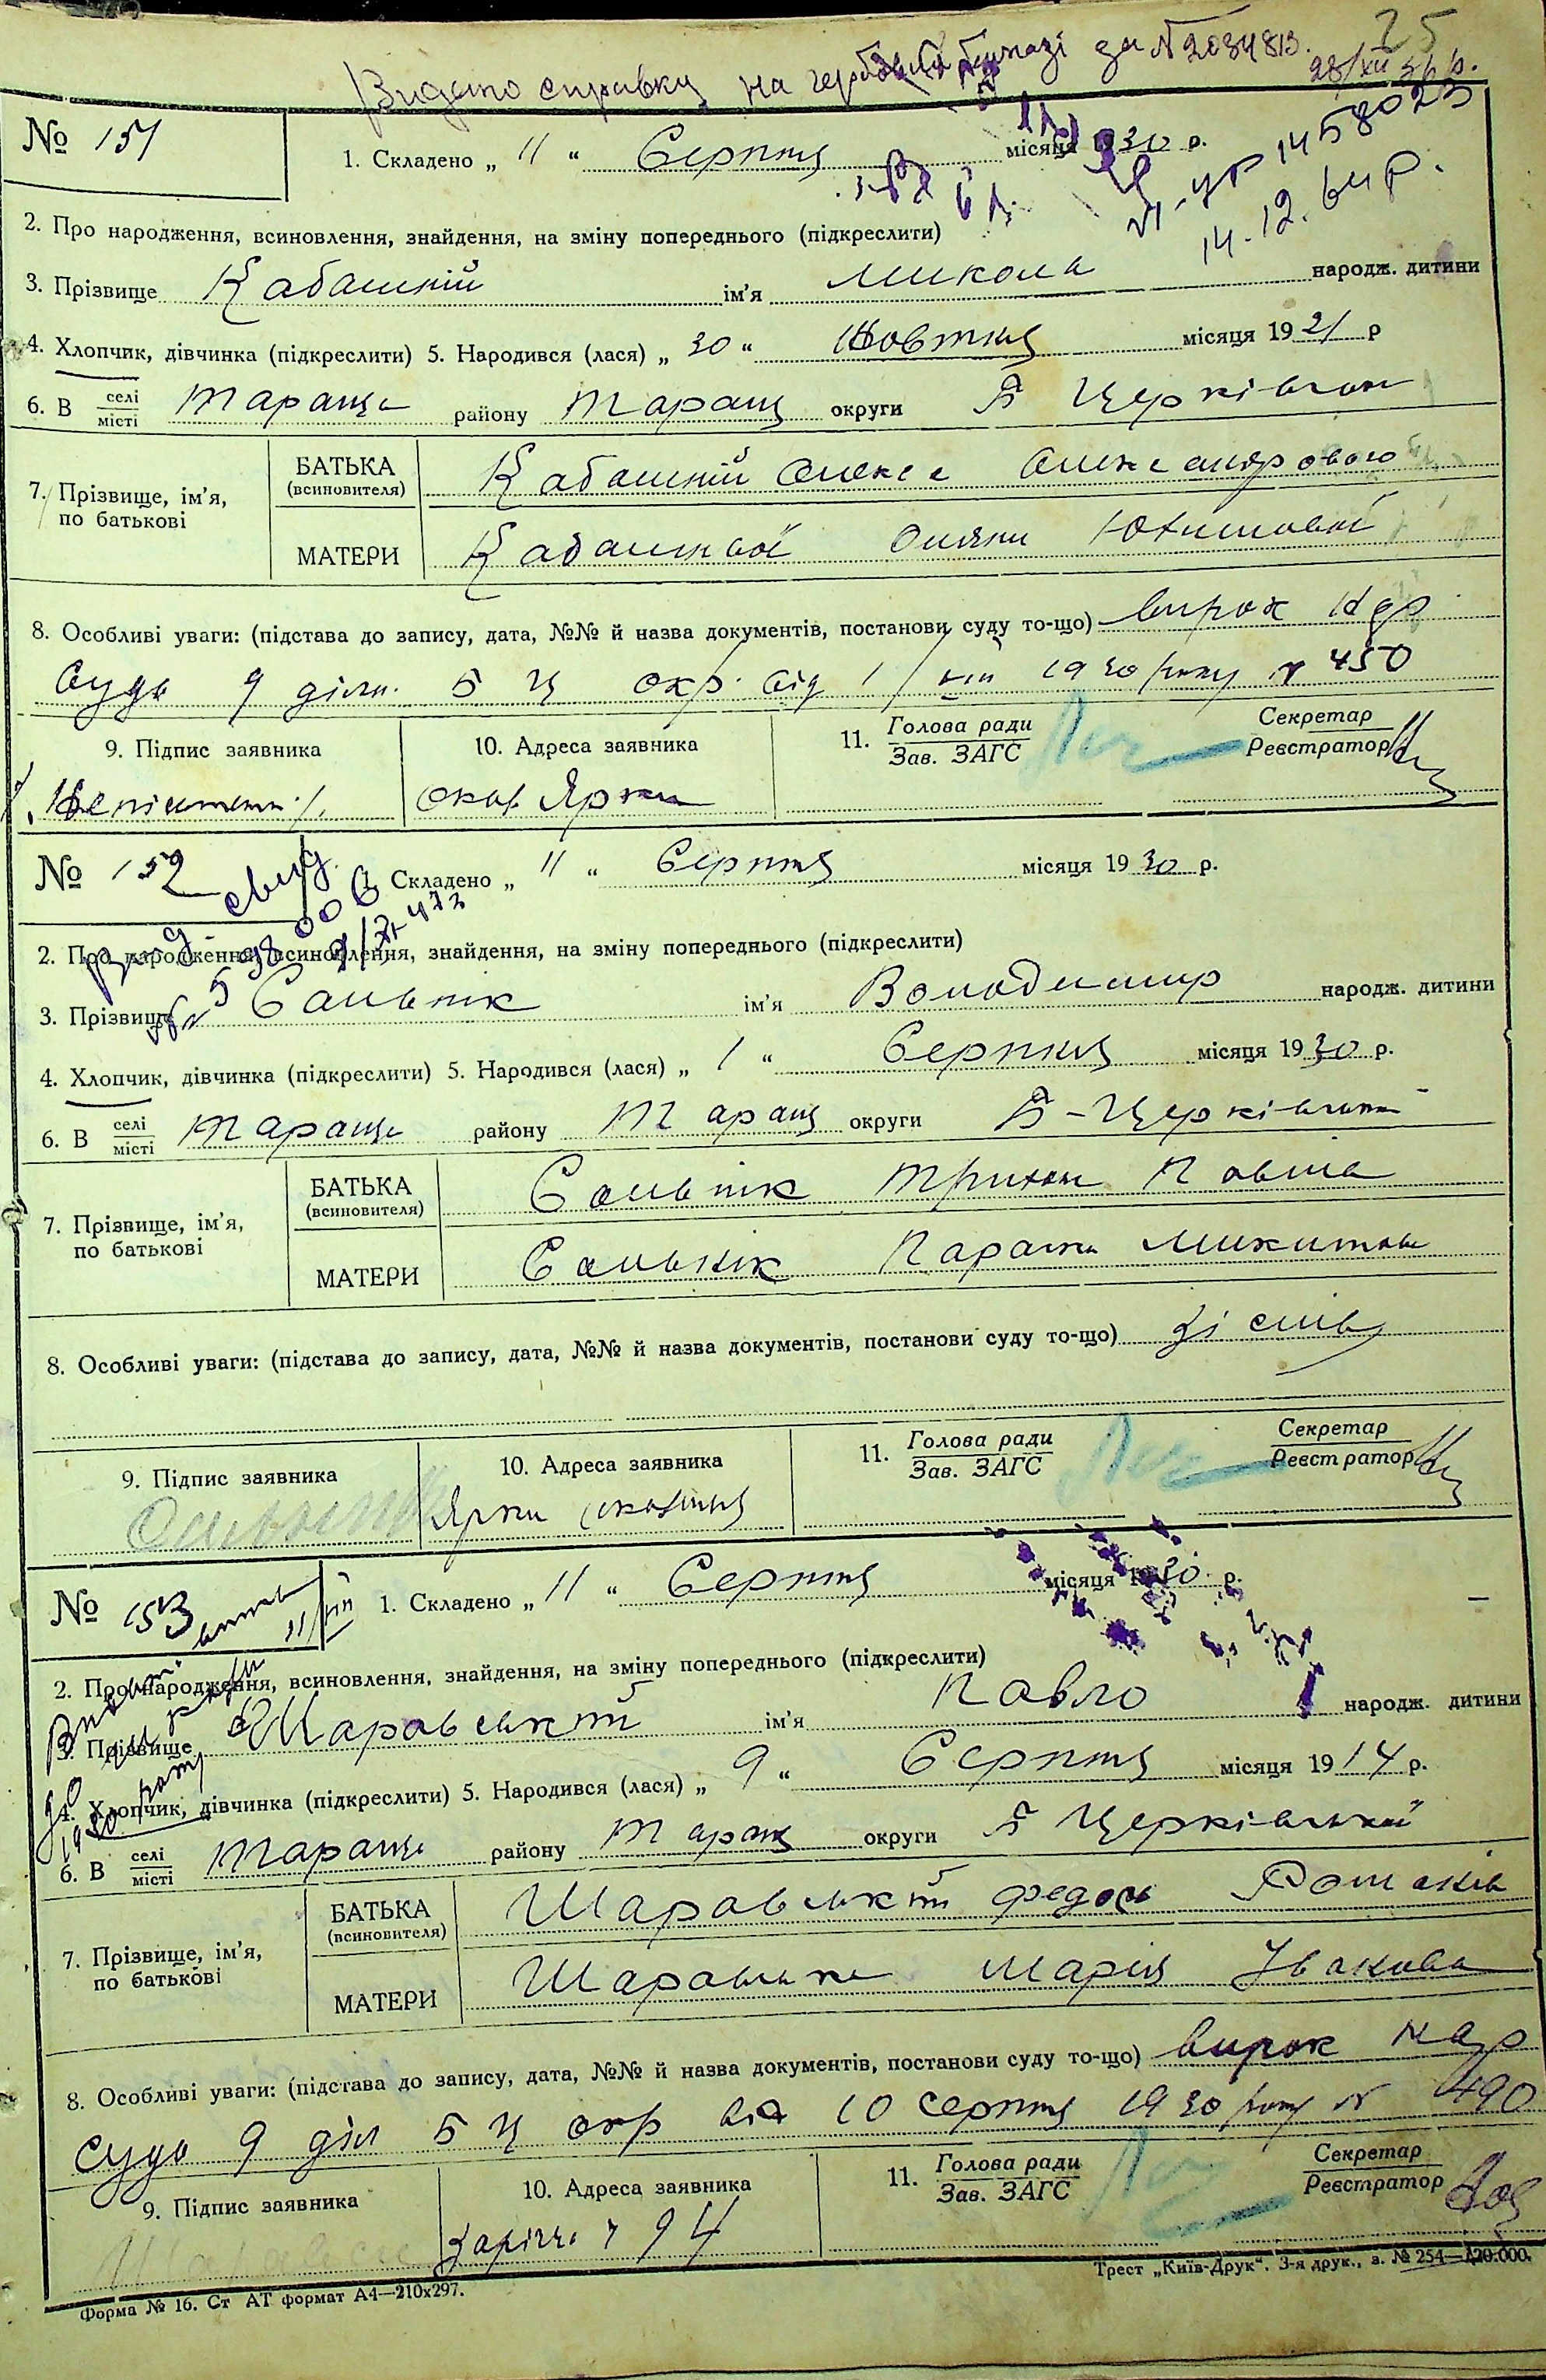 25
Видано справку на гербовій бумазі за № 2034813.
28/XII 36 р.
№ 151
1. Складено „ 11 “ Серпня місяця 1930 р.
14 58023
14.12.
2. Про народження, всиновлення, знайдення, на зміну попереднього (підкреслити)
3. Прізвище Кабашній ім’я Микола народж. дитини
4. Хлопчик, дівчинка (підкреслити) 5. Народився (лася) „ 30 “ Жовтня місяця 1921 р
6. В селі/місті Тараща району Таращ округи Б Церківськ
7. Прізвище, ім’я, по батькові
БАТЬКА (всиновителя) Кабашній Олекса Олександрового
МАТЕРИ Кабашної Юхимовної
8. Особливі уваги: (підстава до запису, дата, №№ й назва документів, постанови суду то-що) вирок Нар
Суда 9 дільн. Б Ц окр. від 1/VIII 1930 року № 450
9. Підпис заявника
10. Адреса заявника
11. Голова ради
Зав. ЗАГС
Секретар
Реєстратор
Неписьмен.
окол Ярки
№ 152
Складено „ 11 “ Серпня місяця 1930 р.
2. Про народження, всиновлення, знайдення, на зміну попереднього (підкреслити)
3. Прізвище Сольнік ім’я Володимир народж. дитини
4. Хлопчик, дівчинка (підкреслити) 5. Народився (лася) „ 1 “ Серпня місяця 1930 р.
6. В селі/місті Тараща району Таращ округи Б-Церківськ
7. Прізвище, ім’я, по батькові
БАТЬКА (всиновителя) Сольнік Трихон Павла
МАТЕРИ Сольнік Параска Микитов
8. Особливі уваги: (підстава до запису, дата, №№ й назва документів, постанови суду то-що) Зі слів
9. Підпис заявника
10. Адреса заявника
11. Голова ради
Зав. ЗАГС
Секретар
Реєстратор
Ярки
№ 153
1. Складено „ 11 “ Серпня місяця 1930 р.
2. Про народження, всиновлення, знайдення, на зміну попереднього (підкреслити)
3. Прізвище Шаравській ім’я Павло народж. дитини
4. Хлопчик, дівчинка (підкреслити) 5. Народився (лася) „ 9 “ Серпня місяця 1914 р.
6. В селі/місті Тараща району Таращ округи Б Церківській
7. Прізвище, ім’я, по батькові
БАТЬКА (всиновителя) Шаравській Федось Романів
МАТЕРИ Шаравська Марія Іванова
8. Особливі уваги: (підстава до запису, дата, №№ й назва документів, постанови суду то-що) вирок нар
суда 9 діл Б Ц окр від 10 серпня 1930 року № 490
9. Підпис заявника
10. Адреса заявника
11. Голова ради
Зав. ЗАГС
Секретар
Реєстратор
Заріччя 94
Форма № 16. Ст АТ формат А4—210х297.
Трест „Київ-Друк“. 3-я друк., з. № 254—120.000.